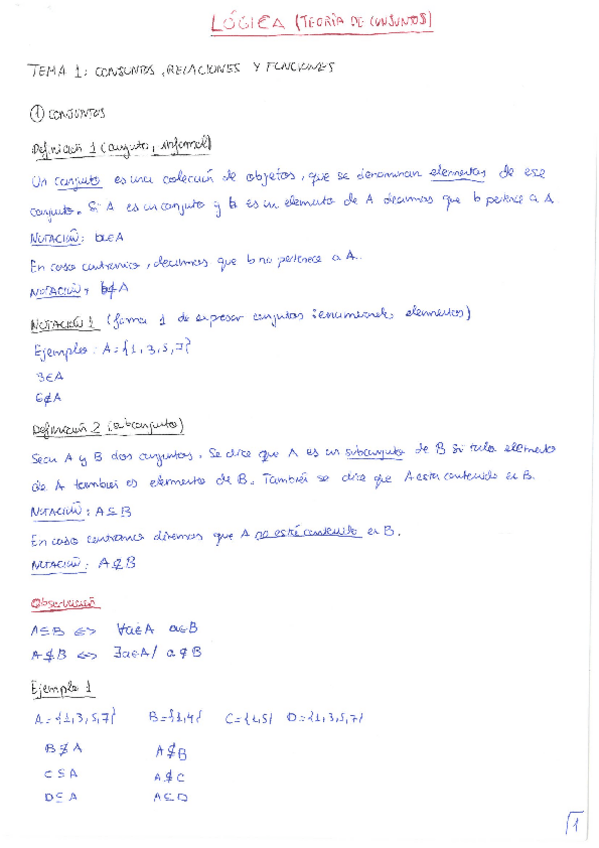 LÓGICA (TEORÍA DE CONJUNTOS)
TEMA 1: CONJUNTOS, RELACIONES Y FUNCIONES
① CONJUNTOS
Definición 1 (conjunto, informal)
Un conjunto es una colección de objetos, que se denominan elementos de ese
conjunto. Si A es un conjunto y b es un elemento de A decimos que b pertenece a A
NOTACIÓN: b∈A
En caso contrario, decimos que b no pertenece a A.
NOTACIÓN: b∉A
NOTACIÓN 1 (forma 1 de expresar conjuntos: enumerando elementos)
Ejemplo: A={1,3,5,7}
3∈A
6∉A
Definición 2 (subconjunto)
Sean A y B dos conjuntos. Se dice que A es un subconjunto de B si todo elemento
de A también es elemento de B. También se dice que A está contenido en B.
NOTACIÓN: A⊆B
En caso contrario diremos que A no está contenido en B.
NOTACIÓN: A⊈B
Observación
A⊆B <=> ∀a∈A a∈B
A⊈B <=> ∃a∈A/ a∉B
Ejemplo 1
A={1,3,5,7} B={1,4} C={1,5} D={1,3,5,7}
B⊈A A⊈B
C⊆A A⊈C
D⊆A A⊆D
1